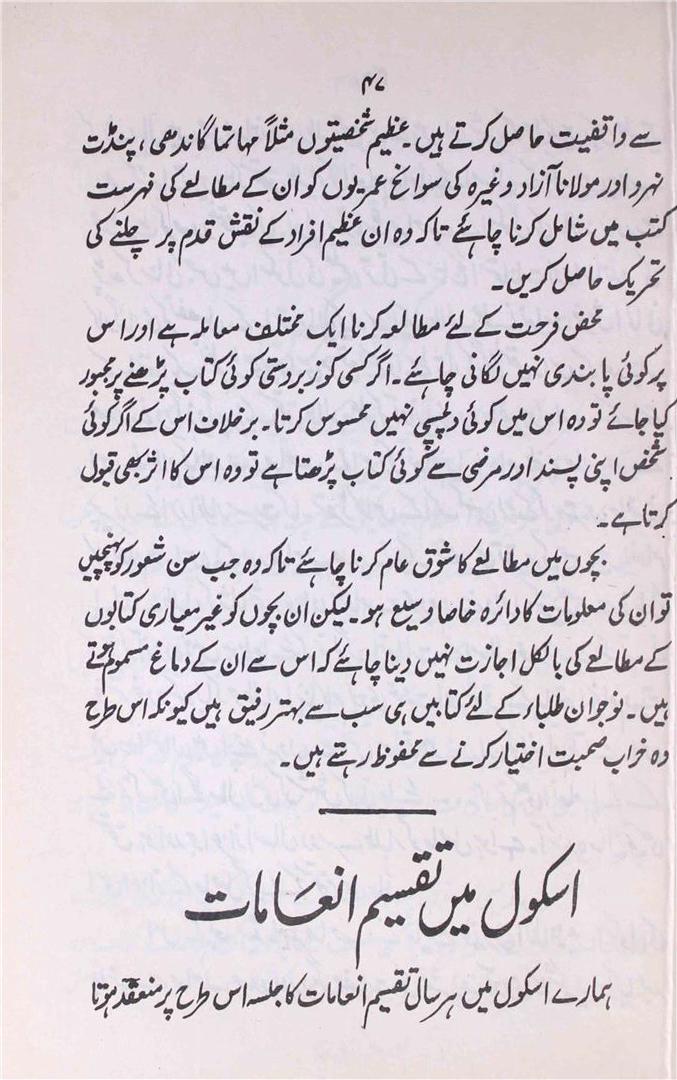 ۴۷
سے واقفیت حاصل کرتے ہیں۔ عظیم شخصیتوں مثلاً مہاتما گاندھی، پنڈت
نہرو اور مولانا آزاد وغیرہ کی سوانح عمریوں کو ان کے مطالعے کی فہرست
کتب میں شامل کرنا چاہئے تاکہ وہ ان عظیم افراد کے نقش قدم پر چلنے کی
تحریک حاصل کریں۔
محض فرحت کے لئے مطالعہ کرنا ایک مختلف معاملہ ہے اور اس
پر کوئی پابندی نہیں لگانی چاہئے۔ اگر کسی کو زبردستی کوئی کتاب پڑھنے پر مجبور
کیا جائے تو وہ اس میں کوئی دلچسپی نہیں محسوس کرتا۔ برخلاف اس کے اگر کوئی
شخص اپنی پسند اور مرضی سے کوئی کتاب پڑھتا ہے تو وہ اس کا اثر بھی قبول
کرتا ہے۔
بچوں میں مطالعے کا شوق عام کرنا چاہئے تاکہ وہ جب سن شعور کو پہنچیں
تو ان کی معلومات کا دائرہ خاصا وسیع ہو۔ لیکن ان بچوں کو غیر معیاری کتابوں
کے مطالعے کی بالکل اجازت نہیں دینا چاہئے کہ اس سے ان کے دماغ مسموم ہوتے
ہیں۔ نوجوان طلباء کے لئے کتابیں ہی سب سے بہتر رفیق ہیں کیونکہ اس طرح
وہ خراب صحبت اختیار کرنے سے محفوظ رہتے ہیں۔
اسکول میں تقسیم انعامات
ہمارے اسکول میں ہر سال تقسیم انعامات کا جلسہ اس طرح پر منعقد ہوتا